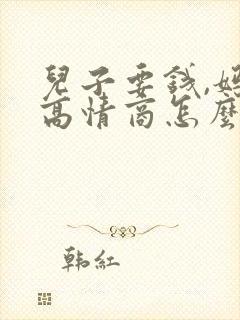 兒子要錢,媽
高情商怎麼
韩紅